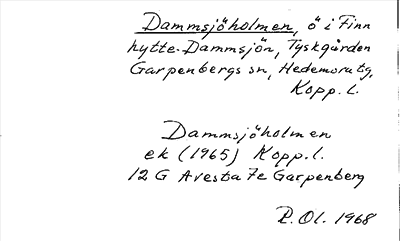 Dammsjöholmen, ö i Finn
hytte-Dammsjön, Tyskgården
Garpenbergs sn, Hedemora tg,
Kopp. l.
Dammsjöholmen
ek (1965) Kopp. l.
12 G Avesta 7e Garpenberg
P. Ol. 1968